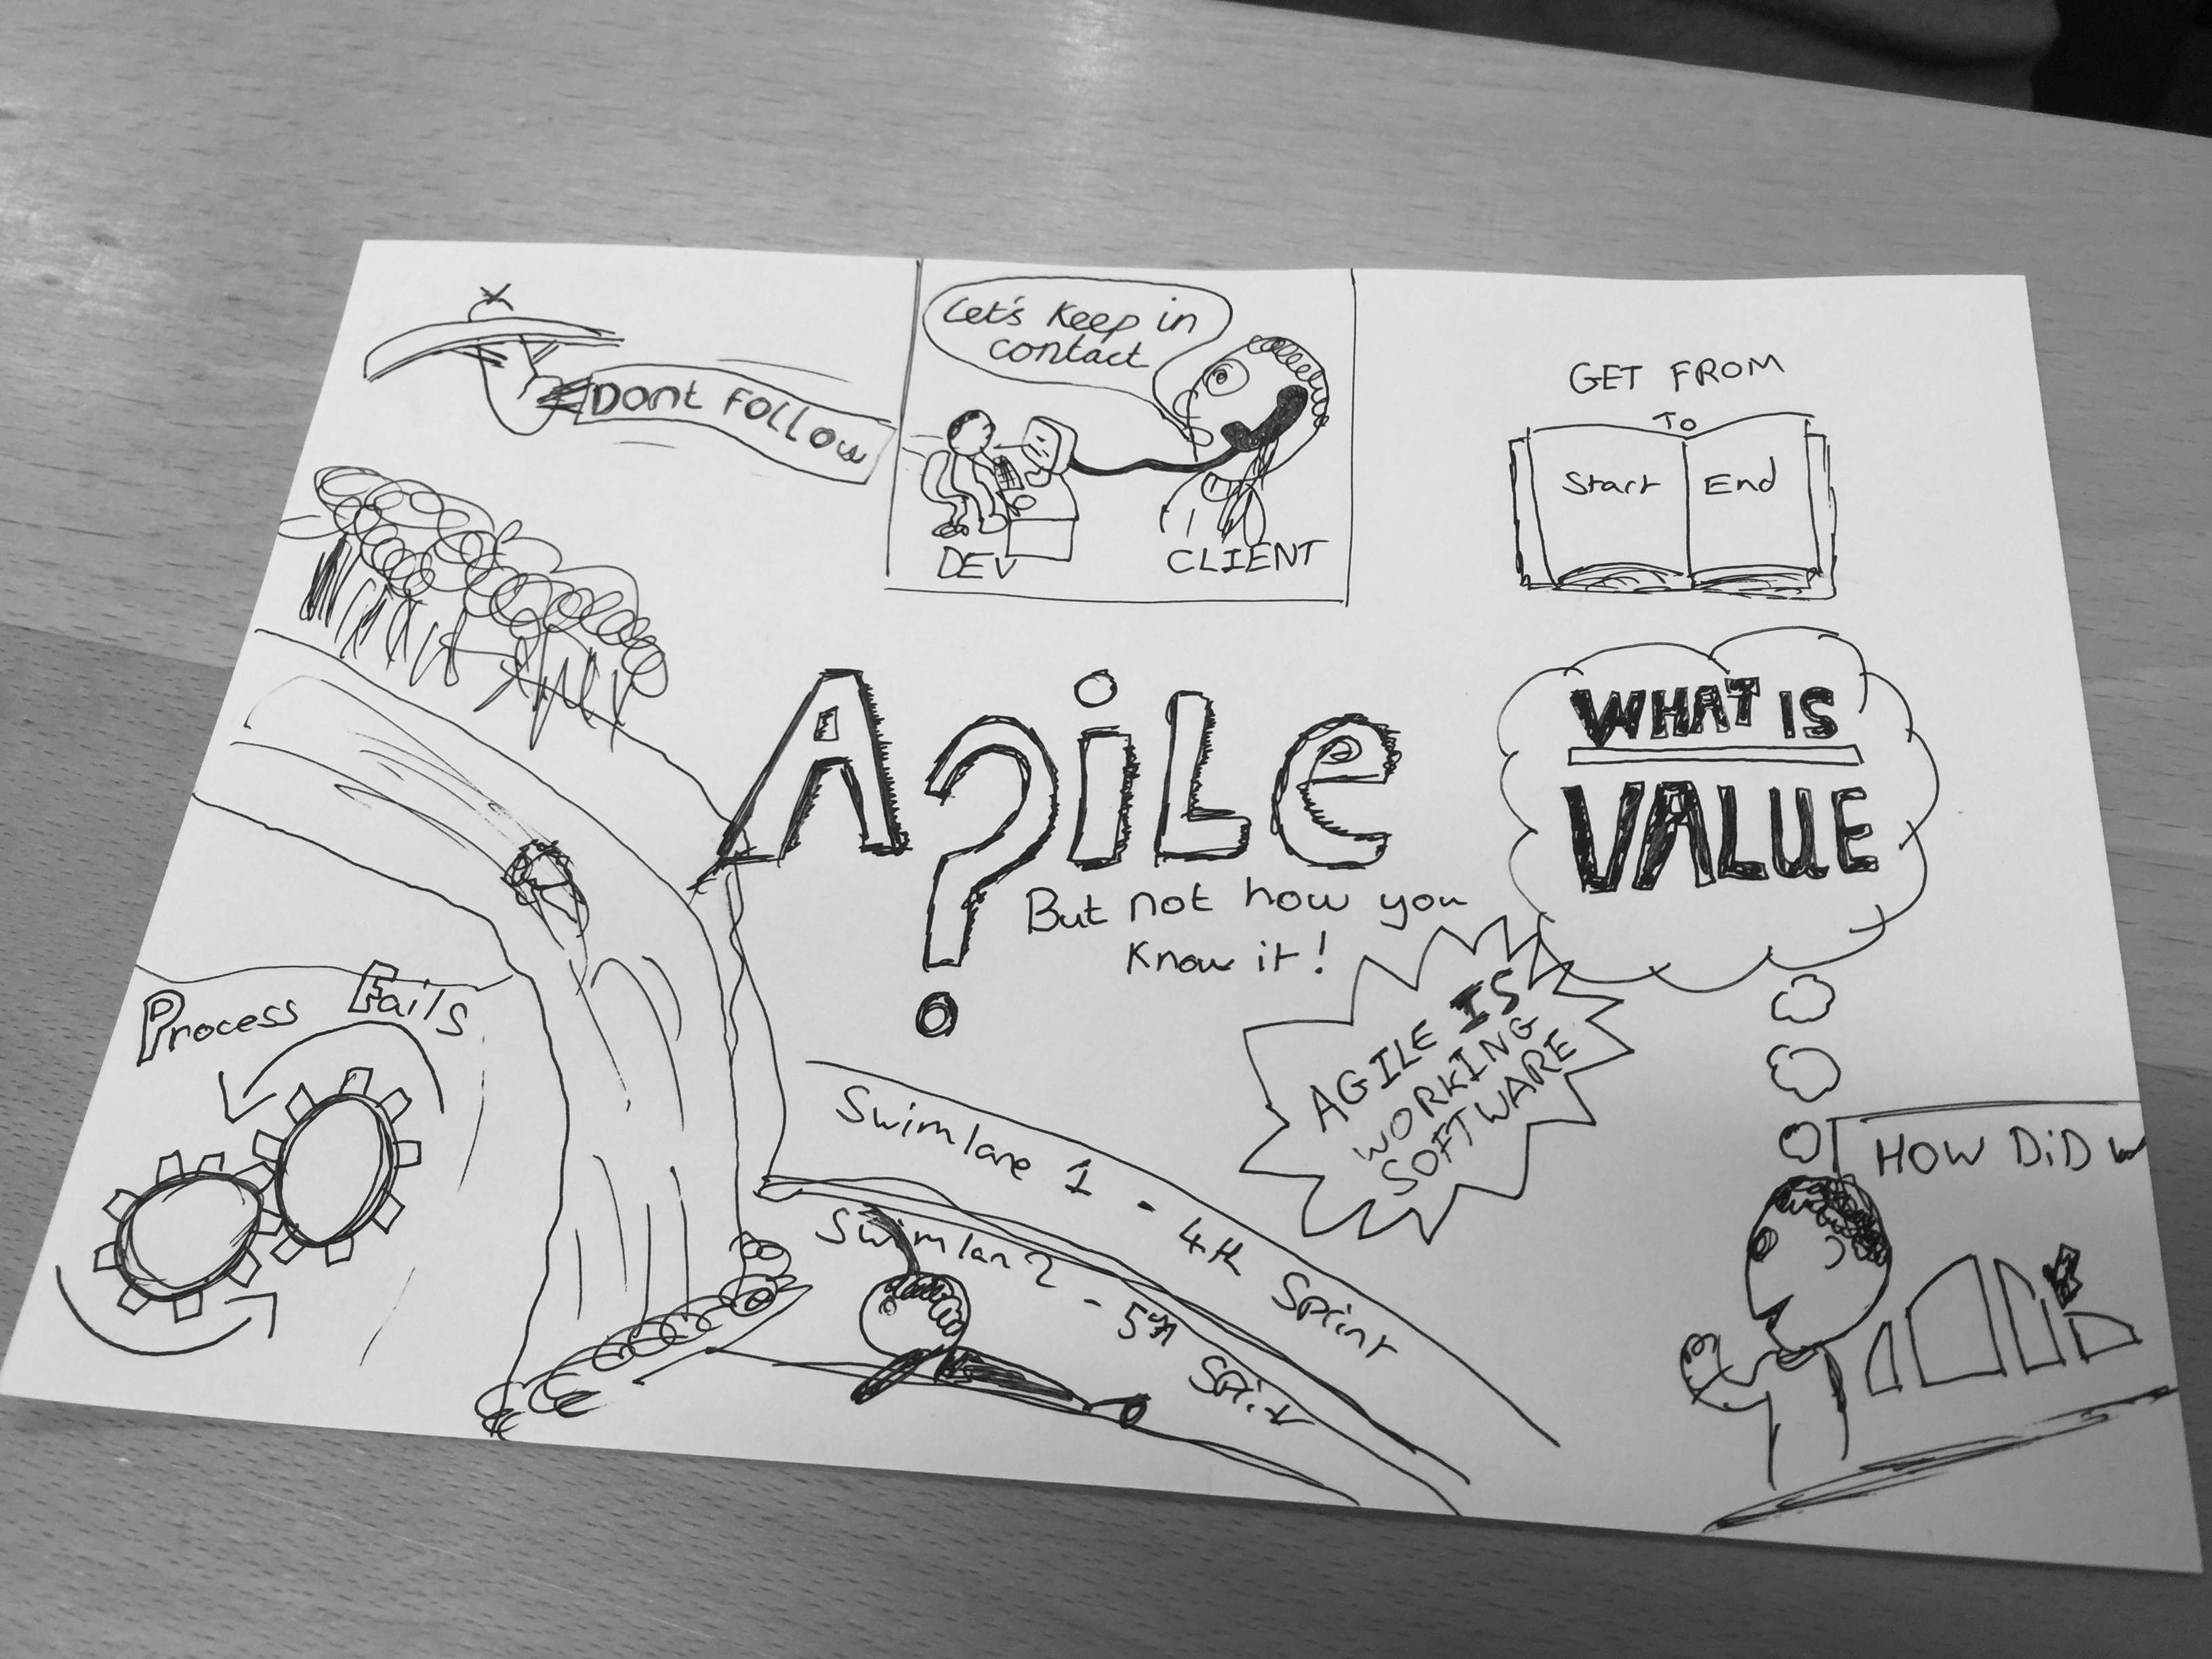 Dont Follow
Let's Keep in
contact
DEV
CLIENT
GET FROM
To
Start End
A?iLe
But not how you
Know it!
WHAT IS
VALUE
Process Fails
AGILE IS
WORKING
SOFTWARE
Swimlane 1 - 4th Sprint
Swimlan 2 - 5th
HOW DiD